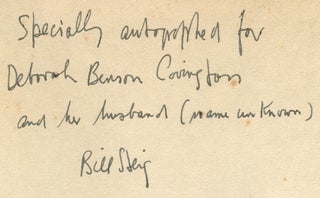 Specially autographed for
Deborah Benson Covington
and her husband (name unknown)
Bill Steig